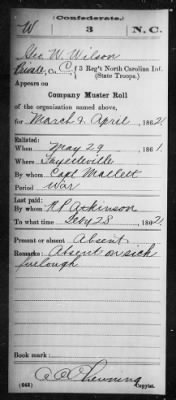 (Confederate.)
W 3 N.C.
Geo W. Wilson
Private, Co. C, 3 Reg't North Carolina Inf.
(State Troops.)
Appears on
Company Muster Roll
of the organization named above,
for March & April, 1862.
Enlisted:
When May 29, 1861.
Where Fayetteville
By whom Capt Mallett
Period War
Last paid:
By whom R P Atkinson
To what time Feby 28, 1862.
Present or absent Absent.
Remarks: Absent on sick
furlough
Book mark:
(642)
Copyist.